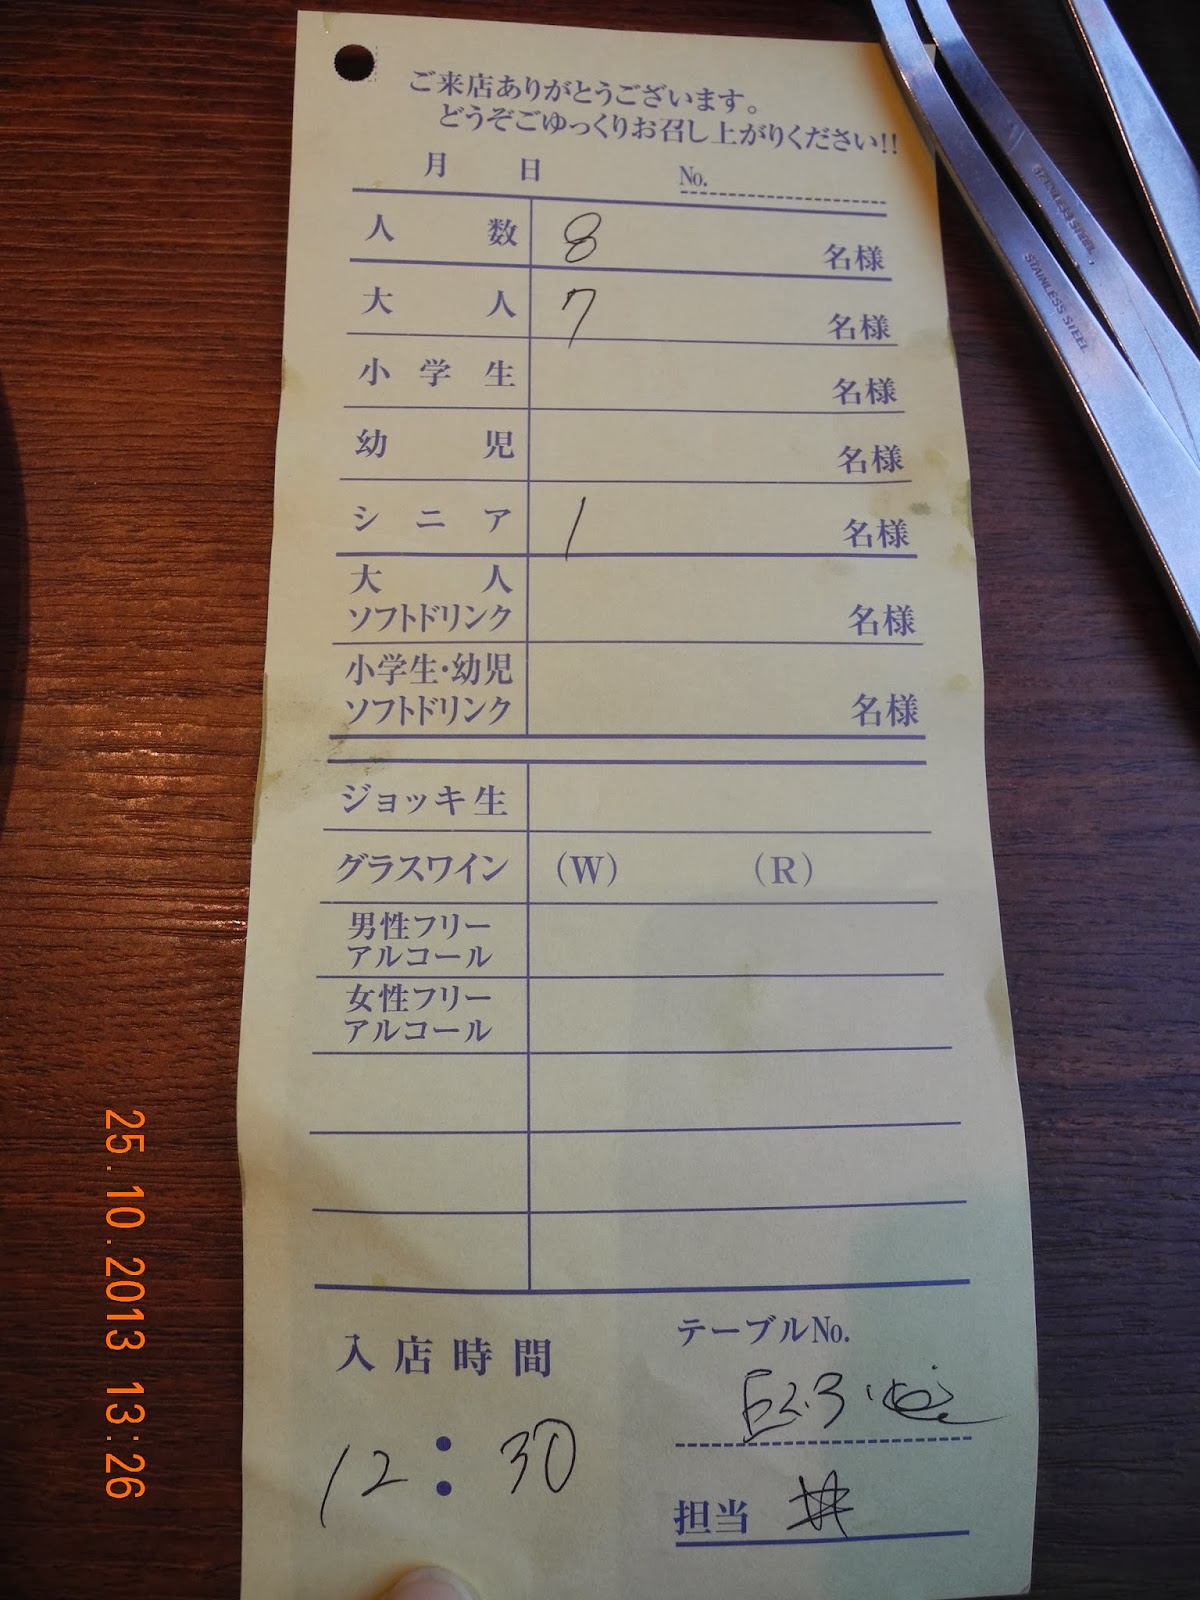 ご来店ありがとうございます。
どうぞごゆっくりお召し上がりください!!
月 日 No.
人数 8 名様
大人 7 名様
小学生 名様
幼児 名様
シニア 1 名様
大人
ソフトドリンク 名様
小学生・幼児
ソフトドリンク 名様
ジョッキ生
グラスワイン (W) (R)
男性フリー
アルコール
女性フリー
アルコール
入店時間
12:30
テーブルNo.
担当
STAINLESS STEEL
STAINLESS STEEL
25.10.2013 13:26